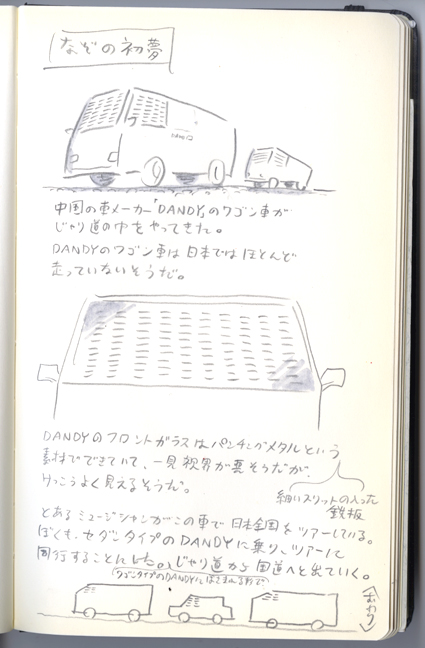 なぞの初夢
DANDY
中国の車メーカー「DANDY」のワゴン車が
じゃり道の中をやってきた。
DANDYのワゴン車は日本ではほとんど
走っていないそうだ。
DANDYのフロントガラスはパンチングメタルという
素材でできていて、一見視界が悪そうだが、
けっこうよく見えるそうだ。
細いスリットの入った
鉄板
とあるミュージシャンがこの車で日本全国をツアーしている。
ぼくも、セダンタイプのDANDYに乗り、ツアーに
同行することにした。じゃり道から国道へと出ていく。
ワゴンタイプのDANDYにはさまれる形で
〈おわり〉